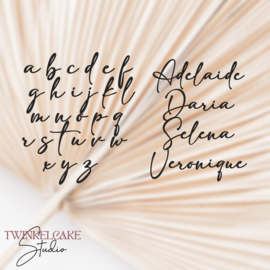 a b c d e f
g h i j k l
m n o p q
r s t u v w
x y z
Adelaide
Daria
Selena
Veronique
TWINKELCAKE
Studio